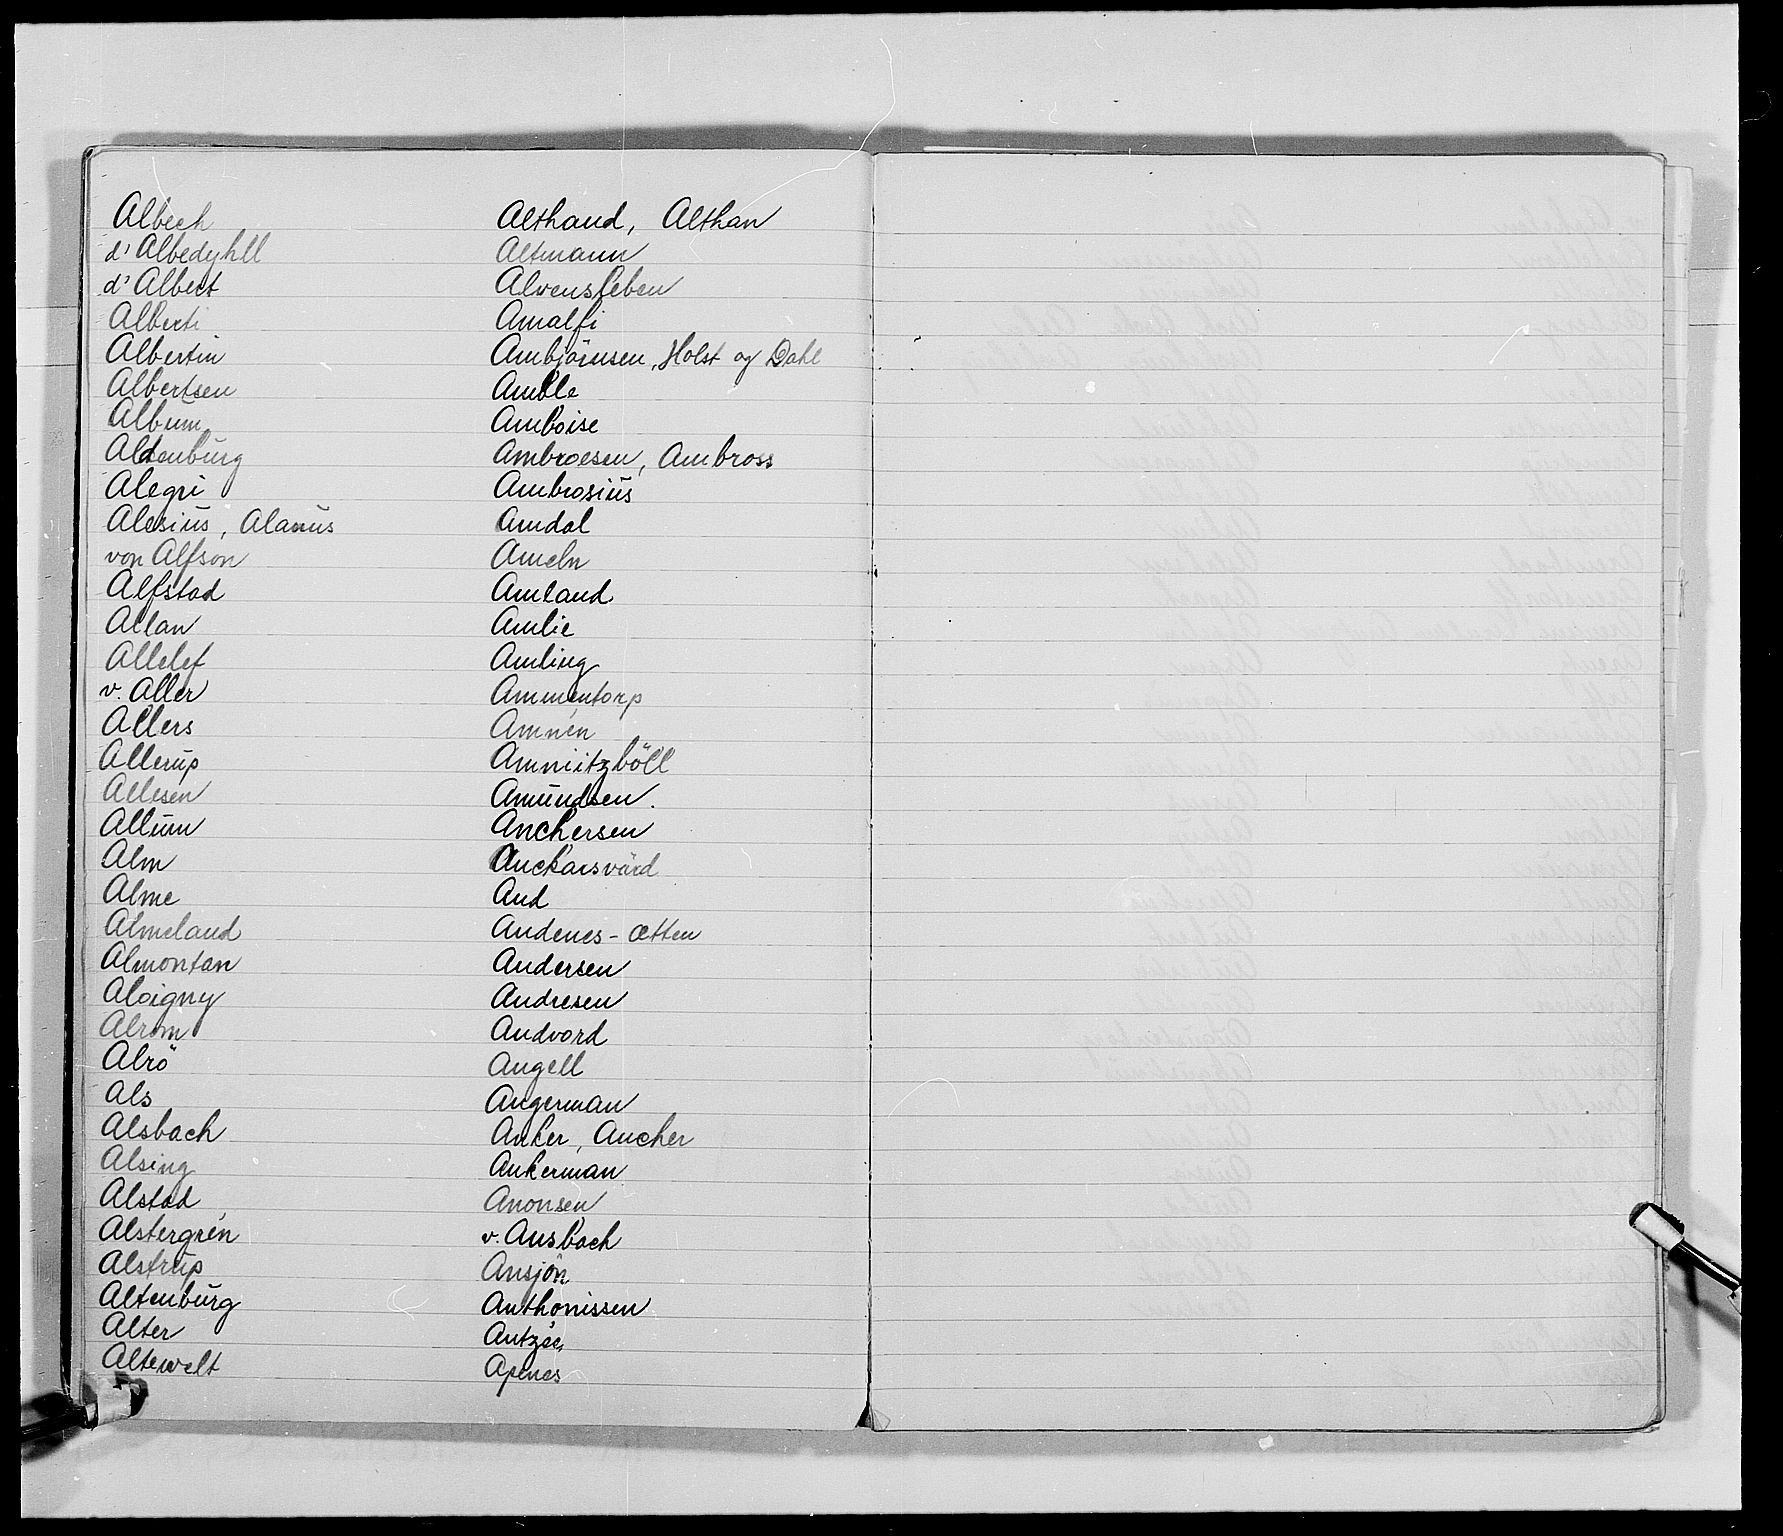 Albech
d' Albedyhll
d' Albert
Alberti
Albertin
Albertsen
Album
Aldenburg
Alegri
Alesius, Alanus
von Alfson
Alfstad
Allan
Allelef
v. Aller
Allers
Allerup
Allesen
Allum
Alm
Alme
Almeland
Almontan
Aloigny
Alrom
Alrö
Als
Alsbach
Alsing
Alstad
Alstergrén
Alstrup
Altenburg
Alter
Altewelt
Althand, Althan
Altmann
Alvensleben
Amalfi
Ambjörnsen, Holst og Dahl
Amble
Amboise
Ambroesen, Ambross
Ambrosius
Amdal
Ameln
Amland
Amlie
Amling
Ammentorp
Amnén
Amnitzböll
Amundsen.
Anchersen
Anckarsvärd
And
Andenes-ætten
Andersen
Andresen
Andvord
Angell
Angerman
Anker, Ancher
Ankerman
Anonsen
v. Ansbach
Ansjön
Anthonissen
Antzée
Apenes